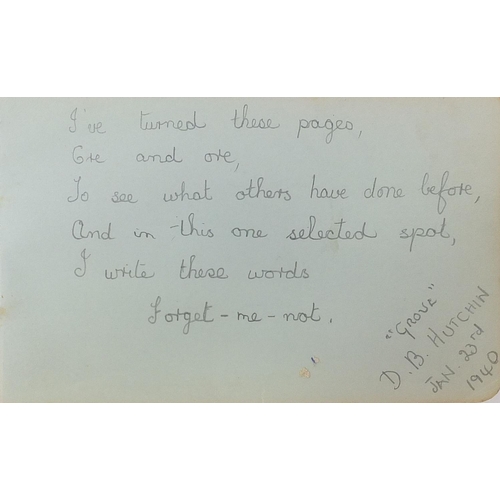 I've turned these pages,
Ore and ore,
To see what others have done before,
And in this one selected spot,
I write these words
Forget-me-not.
"GROVE"
D. B. HUTCHIN
JAN. 23rd
1940